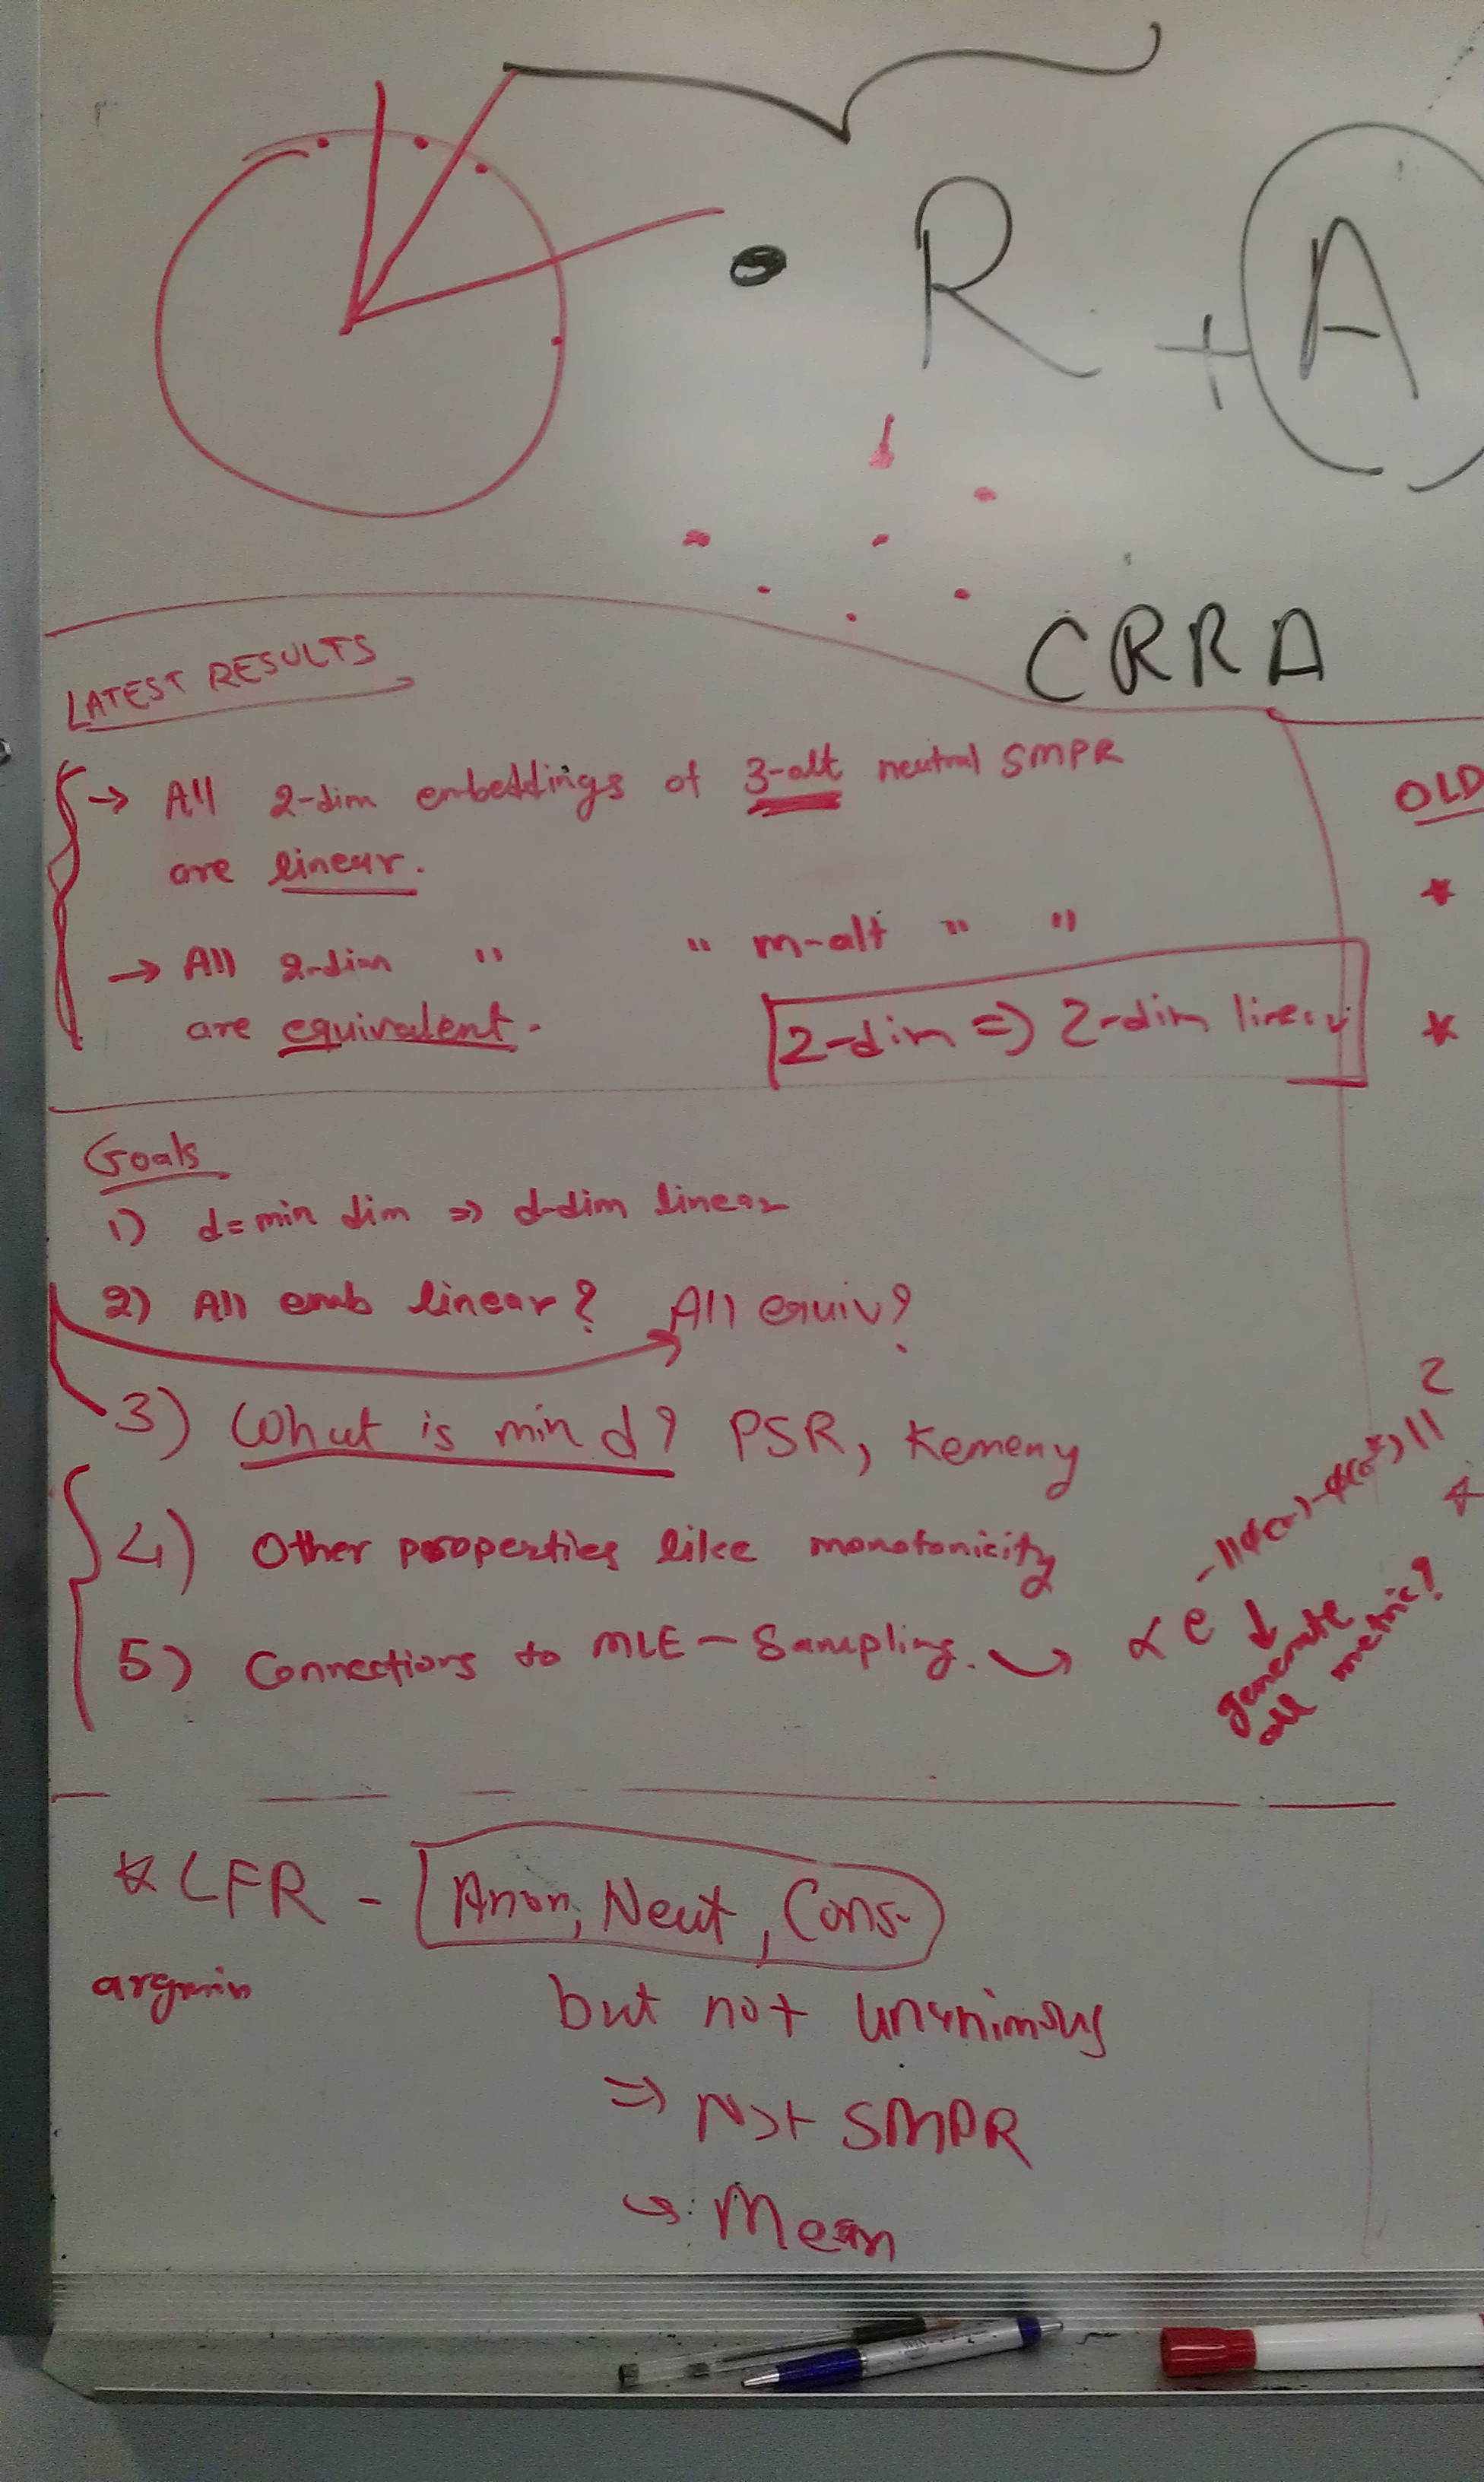 R + A
CRRA
LATEST RESULTS
→ All 2-dim embeddings of 3-alt neutral SMPR
are linear.
→ All 2-dim " " m-alt " "
are equivalent.
2-dim => 2-dim linear
OLD
*
*
Goals
1) d=min dim => d-dim linear
2) All emb linear? All equiv?
3) What is min d? PSR, Kemeny
4) Other properties like monotonicity
5) Connections to MLE - Sampling. → α e -||φ(σ)-φ(σ*)||²
↓
generate
all metric?
* LFR - Anon, Neut, Cons.
argmin
but not unanimous
=> Not SMPR
↪ Mean